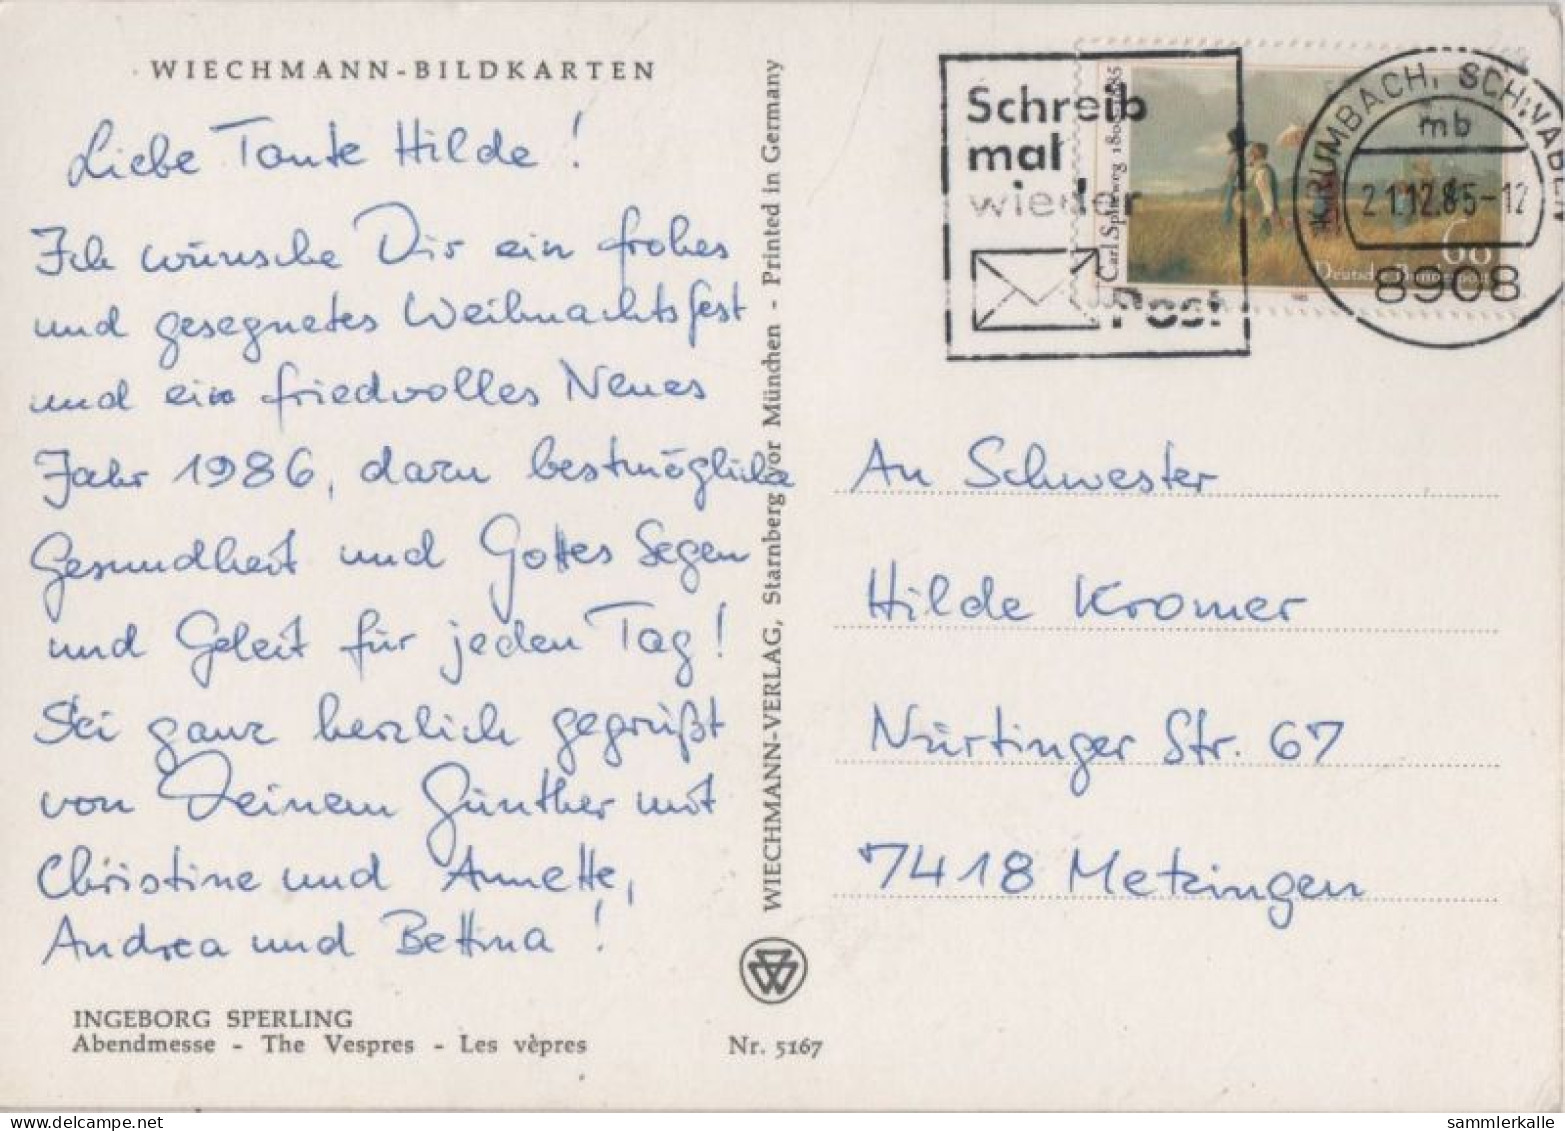 WIECHMANN-BILDKARTEN
Liebe Tante Hilde!
Ich wünsche Dir ein frohes
und gesegnetes Weihnachtsfest
und ein friedvolles Neues
Jahr 1986, dazu bestmögliche
Gesundheit und Gottes Segen
und Geleit für jeden Tag!
Sei ganz herzlich gegrüßt
von Deinem Günther mit
Christine und Annette,
Andrea und Bettina!
INGEBORG SPERLING
Abendmesse - The Vespres - Les vèpres
Nr. 5167
WIECHMANN-VERLAG, Starnberg vor München - Printed in Germany
Schreib
mal
wieder
Post
Carl Spitzweg 1808-1885
60
Deutsche Bundespost
KRUMBACH, SCHWABEN
mb
21.12.85-12
8908
An Schwester
Hilde Kromer
Nürtinger Str. 67
7418 Metzingen
sammlerkalle